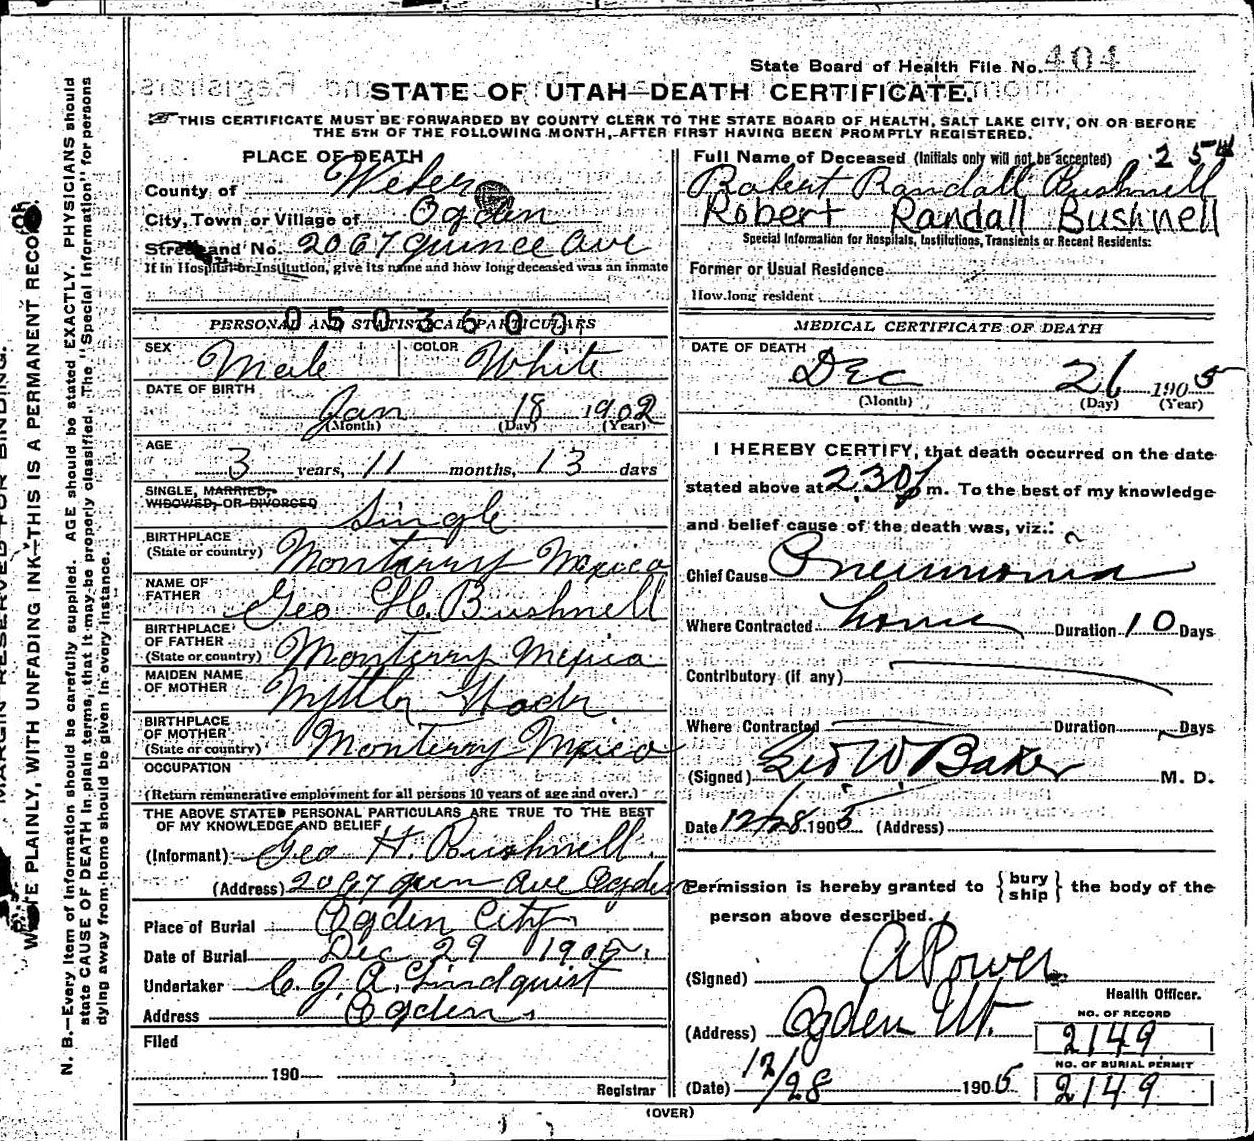 State Board of Health File No. 404
STATE OF UTAH—DEATH CERTIFICATE.
THIS CERTIFICATE MUST BE FORWARDED BY COUNTY CLERK TO THE STATE BOARD OF HEALTH, SALT LAKE CITY, ON OR BEFORE
THE 5TH OF THE FOLLOWING MONTH, AFTER FIRST HAVING BEEN PROMPTLY REGISTERED.
PLACE OF DEATH
County of Weber
City, Town or Village of Ogden
Street and No. 2067 quince Ave
If in Hospital or Institution, give its name and how long deceased was an inmate
0503600
PERSONAL AND STATISTICAL PARTICULARS
SEX Male COLOR White
DATE OF BIRTH
Jan 18 1902
(Month) (Day) (Year)
AGE
3 years, 11 months, 13 days
SINGLE, MARRIED,
WIDOWED, OR DIVORCED Single
BIRTHPLACE
(State or country) Monterry Mexico
NAME OF
FATHER Geo H. Bushnell
BIRTHPLACE
OF FATHER
(State or country) Monterry Mexico
MAIDEN NAME
OF MOTHER
BIRTHPLACE
OF MOTHER
(State or country) Monterry Mexico
OCCUPATION
(Return remunerative employment for all persons 10 years of age and over.)
THE ABOVE STATED PERSONAL PARTICULARS ARE TRUE TO THE BEST
OF MY KNOWLEDGE AND BELIEF
(Informant) Geo H. Bushnell
(Address) 2067 Ave Ogden
Place of Burial Ogden City
Date of Burial Dec 29 1905
Undertaker C. J. A. Lindquist
Address Ogden
Filed
190
Registrar
Full Name of Deceased (Initials only will not be accepted) 2 54
Robert Randall Bushnell
Robert Randall Bushnell
Special Information for Hospitals, Institutions, Transients or Recent Residents:
Former or Usual Residence
How long resident
MEDICAL CERTIFICATE OF DEATH
DATE OF DEATH
Dec 26 1905
(Month) (Day) (Year)
I HEREBY CERTIFY, that death occurred on the date
stated above at 2.30 p m. To the best of my knowledge
and belief cause of the death was, viz.:
Chief Cause Pneumonia
Where Contracted home Duration 10 Days
Contributory (if any)
Where Contracted Duration Days
(Signed) Geo W Baker M. D.
Date 12/28 1905 (Address)
Permission is hereby granted to { bury ship } the body of the
person above described.
(Signed) A Power
Health Officer.
(Address) Ogden Ut.
NO. OF RECORD
2149
NO. OF BURIAL PERMIT
2149
(Date) 12/28 1905
(OVER)
MARGIN RESERVED FOR BINDING.
WRITE PLAINLY, WITH UNFADING INK—THIS IS A PERMANENT RECORD.
N. B.—Every item of information should be carefully supplied. AGE should be stated EXACTLY. PHYSICIANS should
state CAUSE OF DEATH in plain terms, that it may be properly classified. The "Special Information" for persons
dying away from home should be given in every instance.